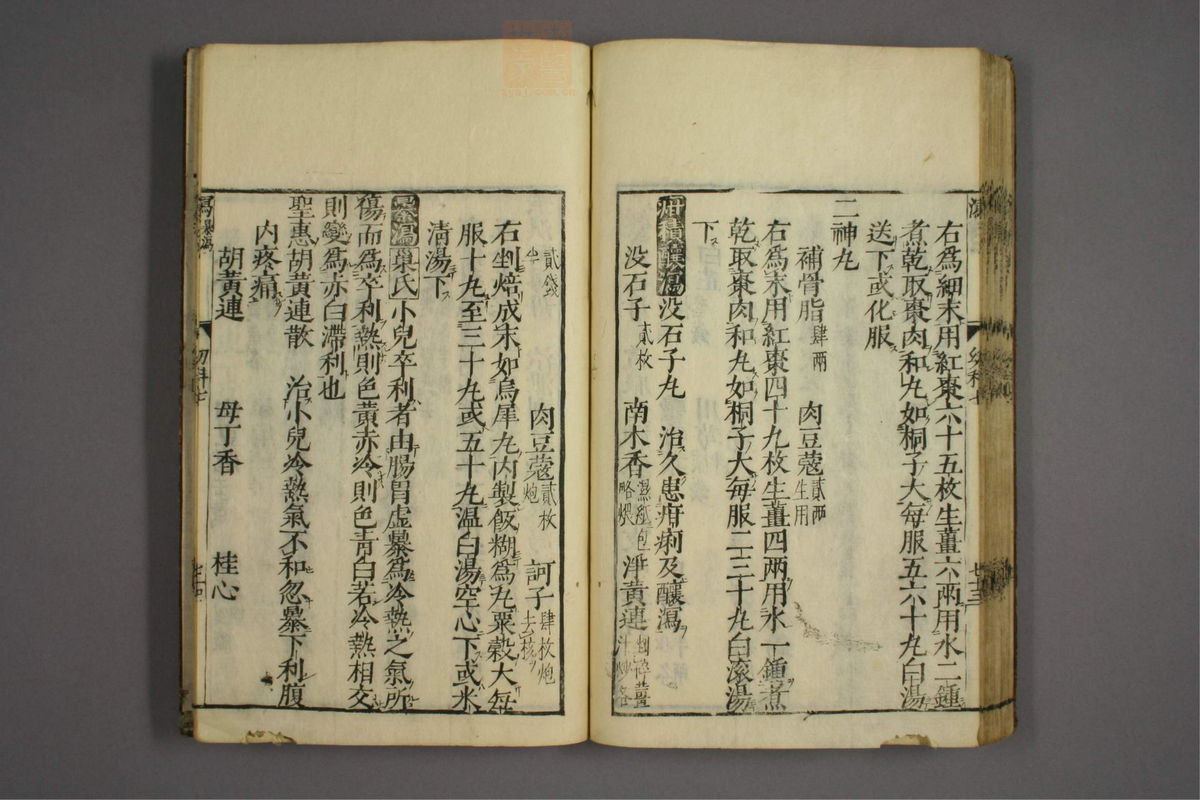 右爲細末用紅棗六十五枚生薑六兩用水二鍾
煮乾取棗肉和丸如桐子大每服五六十丸白湯
送下或化服
二神丸
補骨脂肆兩 肉豆蔻貳兩生用
右爲末用紅棗四十九枚生薑四兩用水一鍾煮
乾取棗肉和丸如桐子大每服二三十丸白滾湯
下
疳積釀瀉 没石子丸 治久患疳痢及釀瀉
没石子貳枚 南木香濕紙包略煨 淨黄連剉碎薑汁炒各
貳錢半 肉豆蔻貳枚炮 訶子肆枚炮去核
右剉焙成末如烏犀丸内製飯糊爲丸粟穀大每
服十丸至三十丸或五十丸温白湯空心下或米
清湯下
暴瀉 巢氏 小兒卒利者由腸胃虛暴爲冷熱之氣所
傷而爲卒利熱則色黄赤冷則色青白若冷熱相交
則變爲赤白滯利也
聖惠胡黄連散 治小兒冷熱氣不和忽暴下利腹
内疼痛
胡黄連 母丁香 桂心